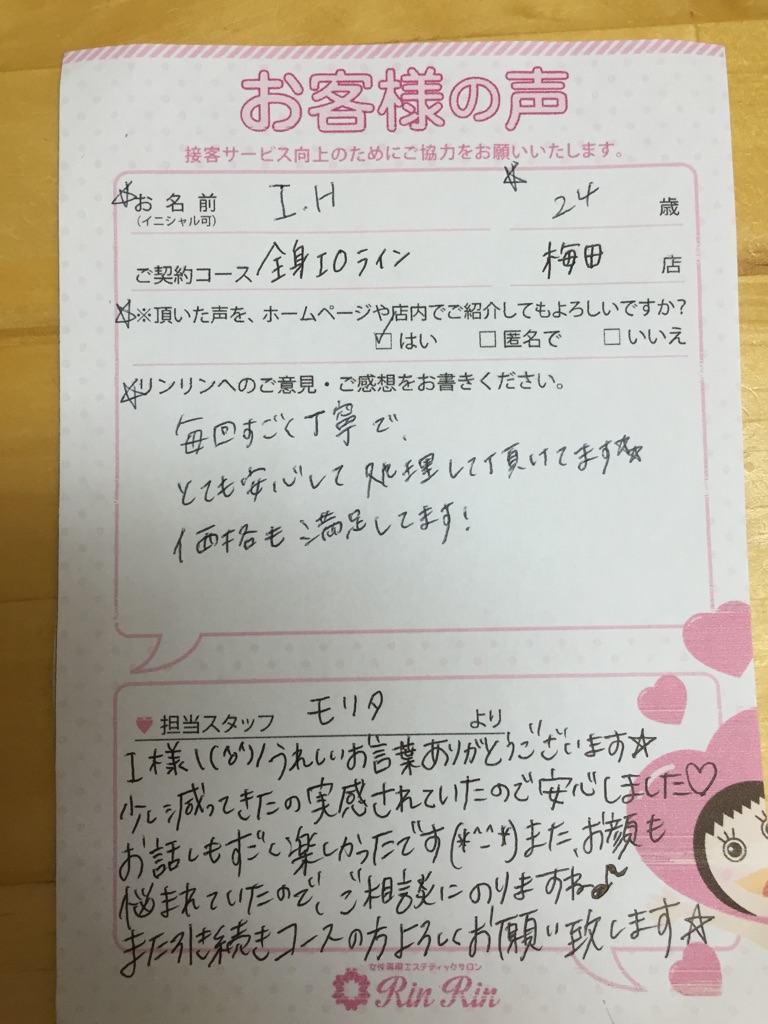 お客様の声
接客サービス向上のためにご協力をお願いいたします。
☆お名前 I.H ☆ 24 歳
(イニシャル可)
ご契約コース 全身IOライン 梅田 店
☆※頂いた声を、ホームページや店内でご紹介してもよろしいですか?
☑はい □匿名で □いいえ
☆リンリンへのご意見・ご感想をお書きください。
毎回すごく丁寧で、
とても安心して処理して頂けてます☆☆
価格も満足してます!
♥担当スタッフ モリタ より
I様\(^o^)/うれしいお言葉ありがとうございます☆
少し減ってきたの実感されていたので安心しました♡
お話しもすごい楽しかったです(*^-^*)また、お顔も
悩まれていたので、ご相談にのりますね♪
また引き続きコースの方よろしくお願い致します☆
女性専用エステティックサロン
Rin Rin